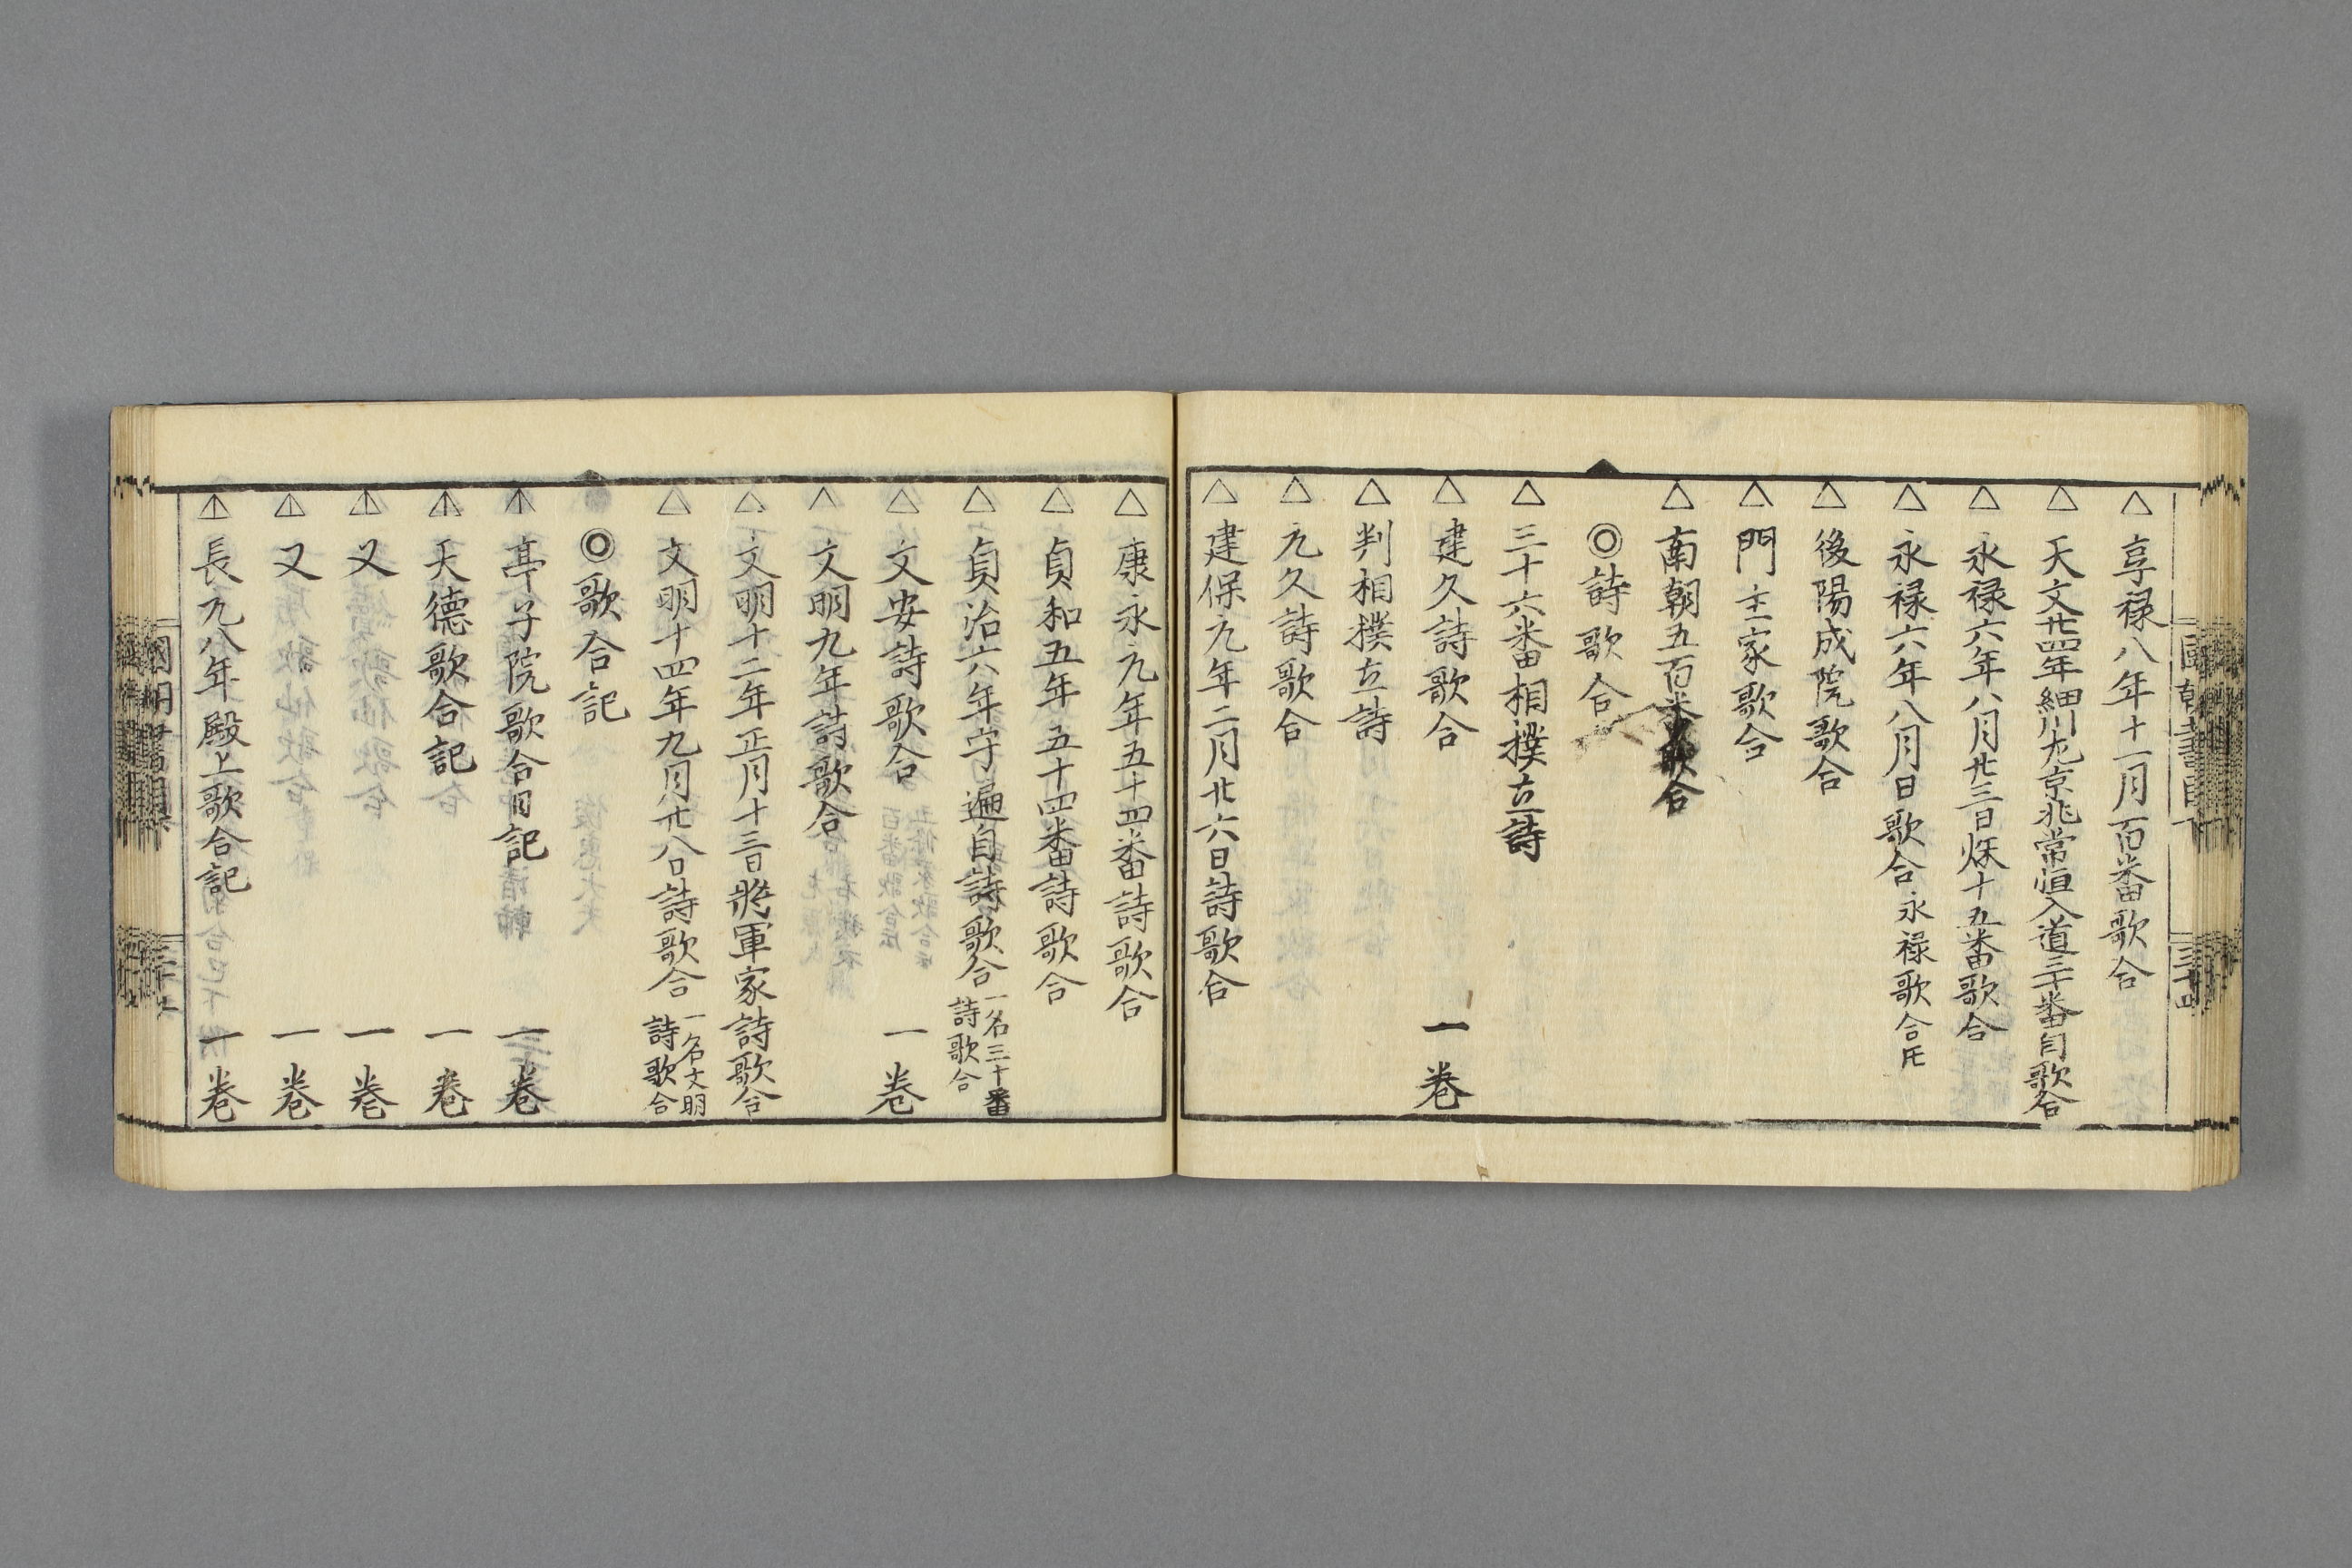 △ 享禄八年十一月百番歌合
△ 天文廿四年細川左京兆常恒入道三十番自歌合
△ 永禄六年八月廿三日烁十五番歌合
△ 永禄六年八月日歌合 永禄歌合氏
△ 後陽成院歌合
△ 門主家歌合
△ 南朝五百番歌合
◎詩歌合
△ 三十六番相撲立詩
△ 建久詩歌合 一巻
△ 判相撲立詩
△ 元久詩歌合
△ 建保九年二月廿六日詩歌合
△ 康永元年五十四番詩歌合
△ 貞和五年五十四番詩歌合
△ 貞治六年守遍自詩歌合 一名三十番詩歌合
△ 文安詩歌合 一巻
△ 文明九年詩歌合
△ 文明十二年正月十三日将軍家詩歌合
△ 文明十四年九月廿八日詩歌合 一名文明詩歌合
◎歌合記
亭子院歌合日記 一巻
天徳歌合記 一巻
又 一巻
又 一巻
長元八年殿上歌合記 一巻